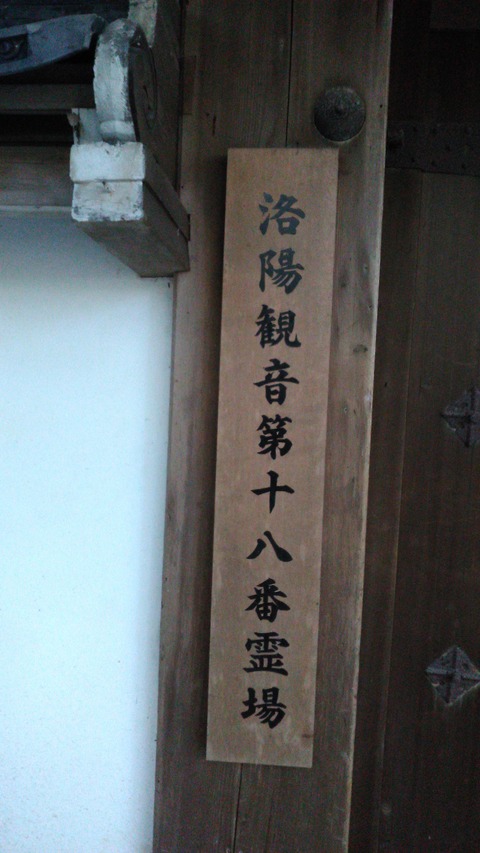 洛陽観音第十八番霊場